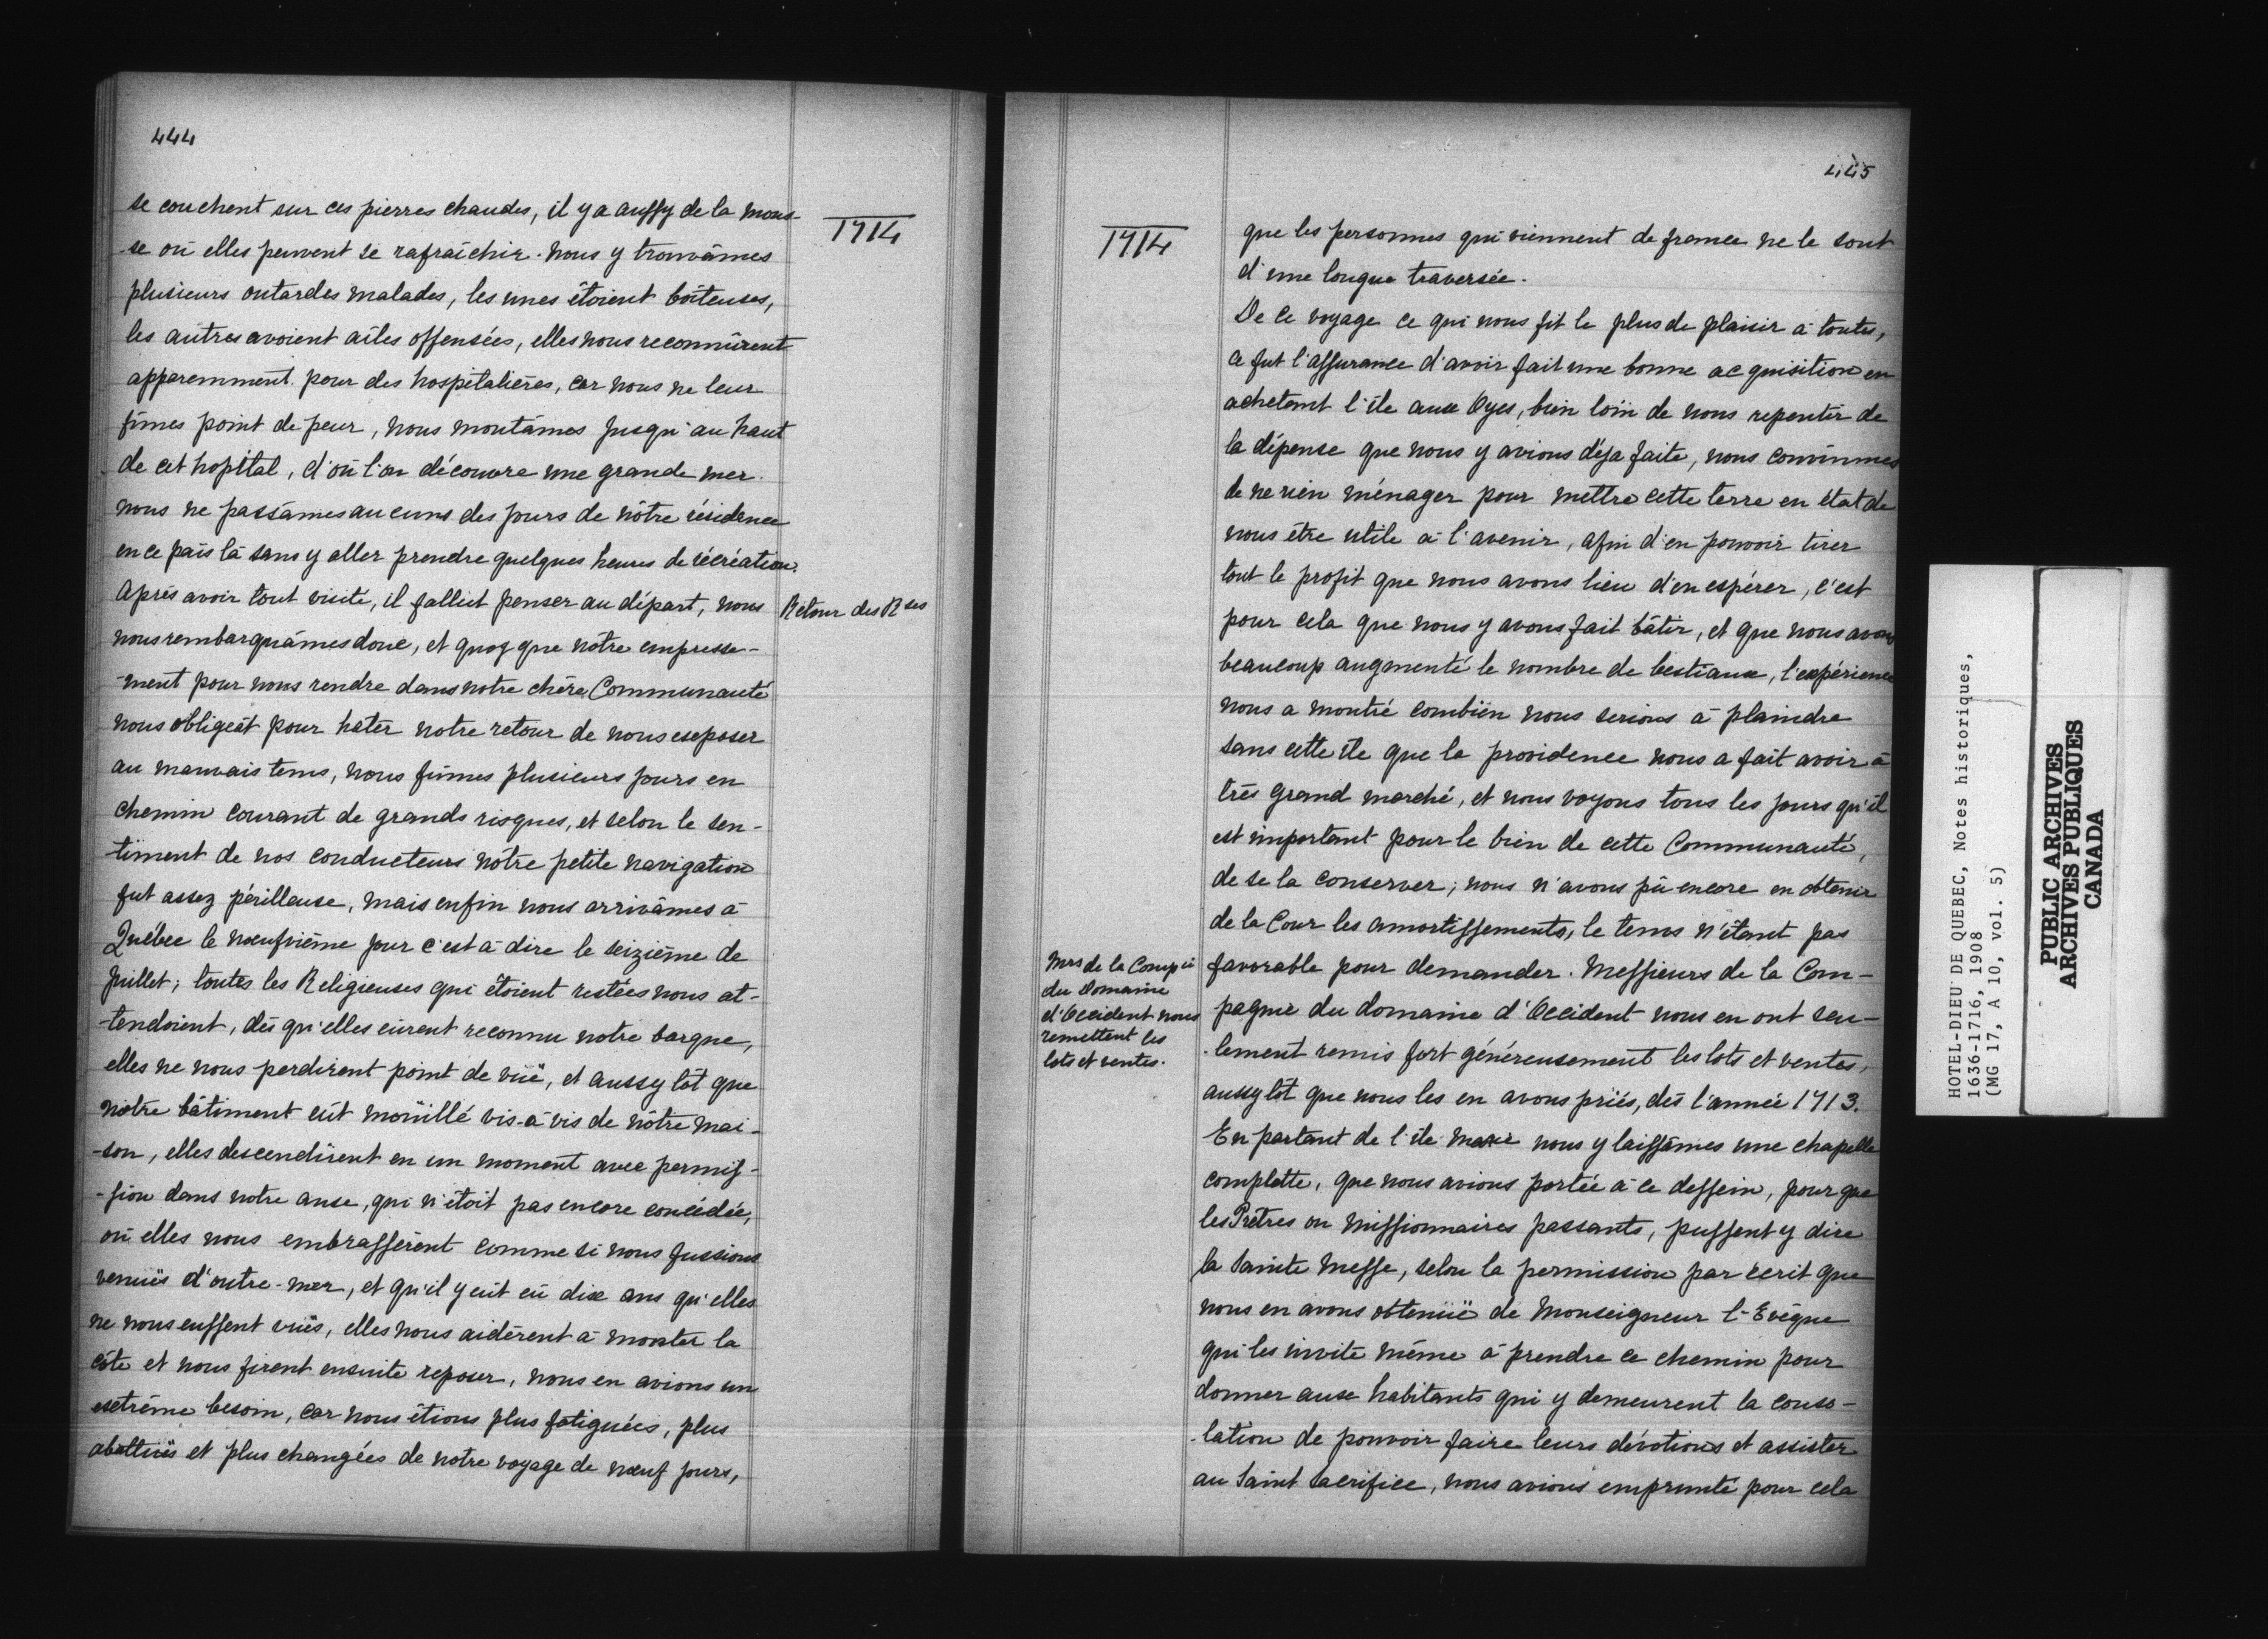 444
1714
se couchent sur ces pierres chaudes, il y a aussy de la mous-
-se où elles peuvent se rafraîchir. nous y trouvâmes
plusieurs outardes malades, les unes étoient boiteuses,
les autres avoient ailes offensées, elles nous reconnûrent
apparemment pour des hospitalières, car nous ne leur
fîmes point de peur, nous montâmes jusqu'au haut
de cet hopital, d'où l'on découvre une grande mer.
nous ne passâmes aucuns des jours de nôtre résidence
en ce païs là sans y aller prendre quelques heures de récréation.
Après avoir tout visité, il fallut penser au départ, nous
Retour des Rses
nous rembarquâmes donc, et quoy que nôtre empresse-
-ment pour nous rendre dans notre chère Communauté
nous obligeât pour hater notre retour de nous exposer
au mauvais tems, nous fûmes plusieurs jours en
chemin courant de grands risques, et selon le sen-
-timent de nos conducteurs nôtre petite navigation
fut assez périlleuse, mais enfin nous arrivâmes à
Québec le nœufvième jour c'est à dire le seizième de
Juillet; toutes les Religieuses qui étoient restées nous at-
-tendoient, dès qu'elles eûrent reconnu notre barque,
elles ne nous perdirent point de vüë, et aussy tôt que
nôtre bâtiment eût moüillé vis-à vis de nôtre mai-
-son, elles descendirent en un moment avec permis-
-sion dans notre anse, qui n'étoit pas encore concédée,
où elles nous embrassèrent comme si nous fussions
venüës d'outre-mer, et qu'il y eût eû dix ans qu'elles
ne nous eussent vuës, elles nous aidèrent à monter la
côte et nous firent ensuite reposer, nous en avions un
extrême besoin, car nous étions plus fatiguées, plus
abattuës et plus changées de notre voyage de nœuf jours,
445
1714
que les personnes qui viennent de france ne le sont
d'une longue traversée.
De ce voyage ce qui nous fit le plus de plaisir à toutes,
ce fut l'assurance d'avoir fait une bonne acquisition en
achetant l'île aux Oyes, bien loin de nous repentir de
la dépense que nous y avions déja faite, nous convînmes
de ne rien ménager pour mettre cette terre en état de
nous être utile à l'avenir, afin d'en pouvoir tirer
tout le profit que nous avons lieu d'en espérer, c'est
pour cela que nous y avons fait bâtir, et que nous avons
beaucoup augmenté le nombre de bestiaux, l'expérience
nous a montré combien nous serions à plaindre
sans cette île que la providence nous a fait avoir à
très grand marché, et nous voyons tous les jours qu'il
est important pour le bien de cette Communauté,
de se la conserver; nous n'avons pû encore en obtenir
de la Cour les amortissements, le tems n'étant pas
favorable pour demander. Messieurs de la Com-
Mrs de la Compie
du Domaine
d'Occident nous
remettent les
lots et ventes.
pagnie du domaine d'Occident nous en ont seu-
-lement remis fort généreusement les lots et ventes,
aussy tôt que nous les en avons priés, dès l'année 1713.
En partant de l'île nous y laissâmes une chapelle
complette, que nous avions portée à ce dessein, pour que
les Prêtres ou Missionnaires passants, pussent y dire
la Sainte Messe, selon la permission par écrit que
nous en avons obtenüë de Monseigneur l'Evêque
qui les invite même à prendre ce chemin pour
donner aux habitants qui y demeurent la conso-
-lation de pouvoir faire leurs dévotions et assister
au Saint Sacrifice, nous avions emprunté pour cela
HOTEL-DIEU DE QUEBEC, Notes historiques,
1636-1716, 1908
(MG 17, A 10, vol. 5)
PUBLIC ARCHIVES
ARCHIVES PUBLIQUES
CANADA